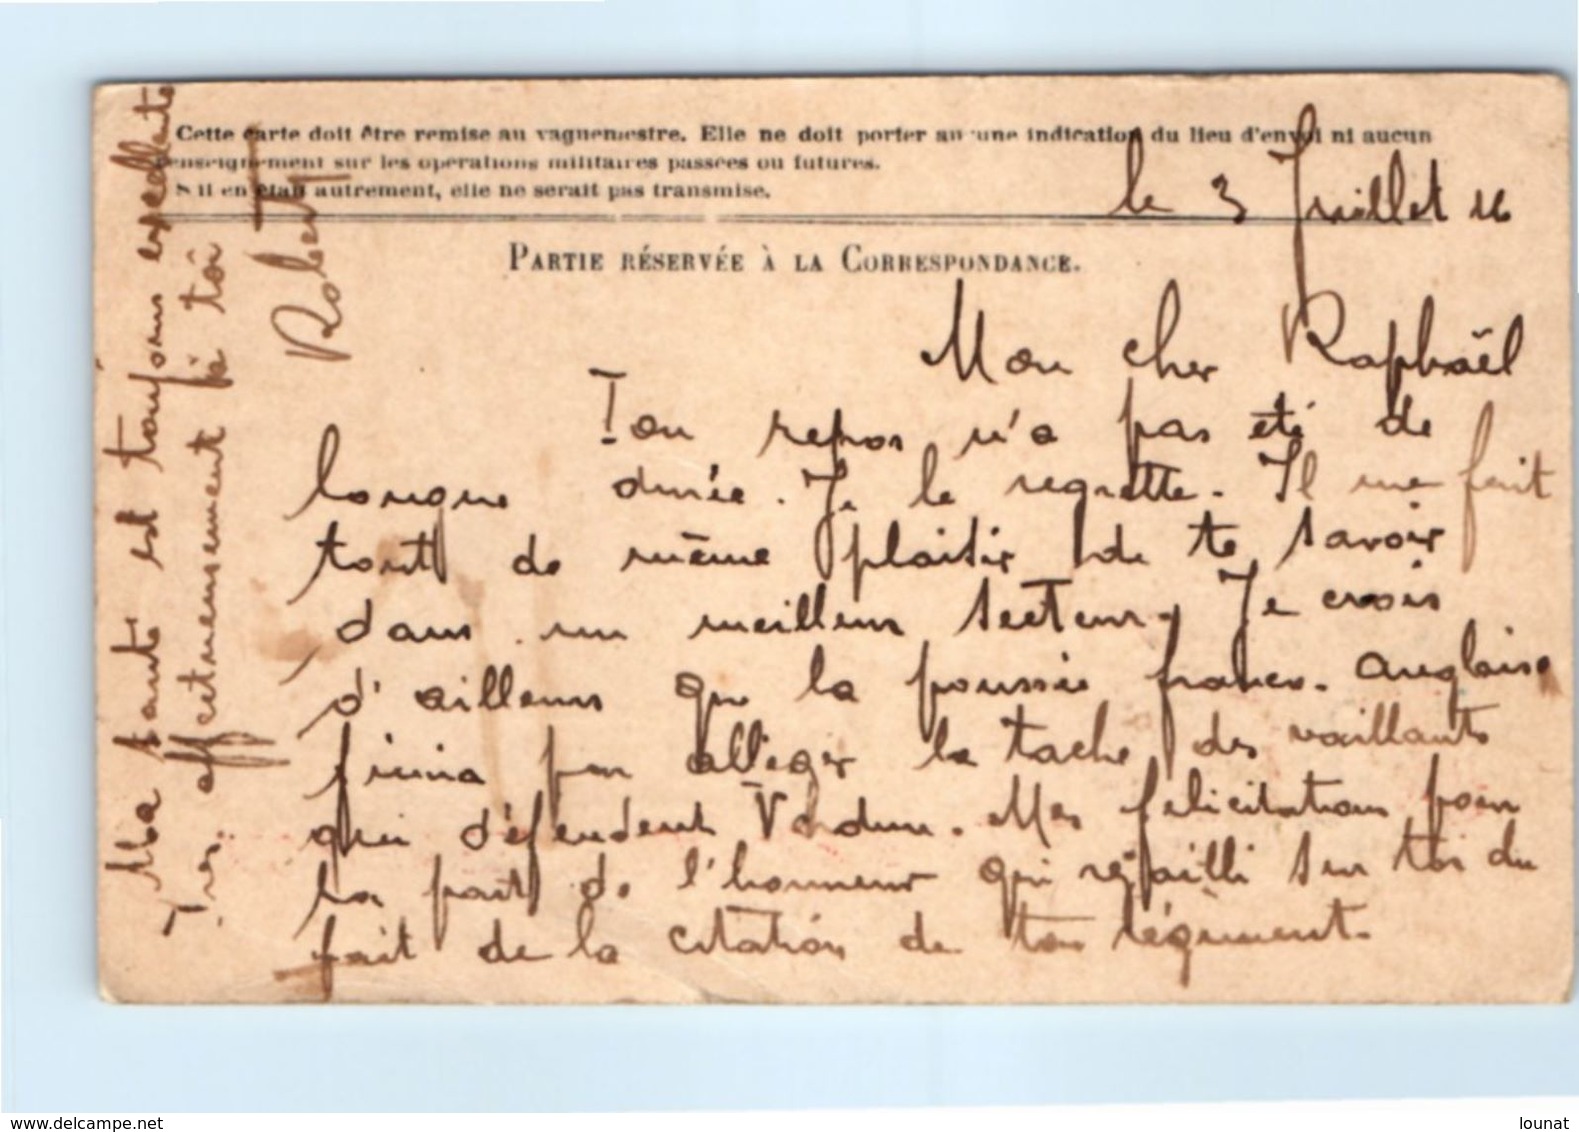 Cette carte doit être remise au vaguemestre. Elle ne doit porter aucune indication du lieu d'envoi ni aucun
renseignement sur les opérations militaires passées ou futures.
S'il en était autrement, elle ne serait pas transmise.
le 3 Juillet 16
PARTIE RÉSERVÉE À LA CORRESPONDANCE.
Mon cher Raphaël
Ton repos n'a pas été de
longue durée. Je le regrette. Il me fait
tout de même plaisir de te savoir
dans un meilleur secteur. Je crois
d'ailleurs que la poussée franco-anglaise
finira par alléger la tache des vaillants
qui défendent Verdun. Mes félicitations pour
la part de l'honneur qui réjailli sur toi du
fait de la citation de ton régiment.
Ma santé est toujours excellente
Très affectueusement à toi
Robert
www.delcampe.net
lounat